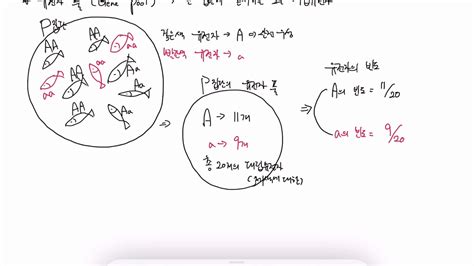 (Gene Pool)
P집단
검은색 유전자 → A → 완전우성
빨간색 유전자 → a
AA
AA
Aa
AA
aa
aa
Aa
aa
Aa
AA
Aa
P집단의 유전자 풀
A → 11개
a → 9개
총 20개의 대립유전자
유전자의 빈도
A의 빈도 = 11/20
a의 빈도 = 9/20